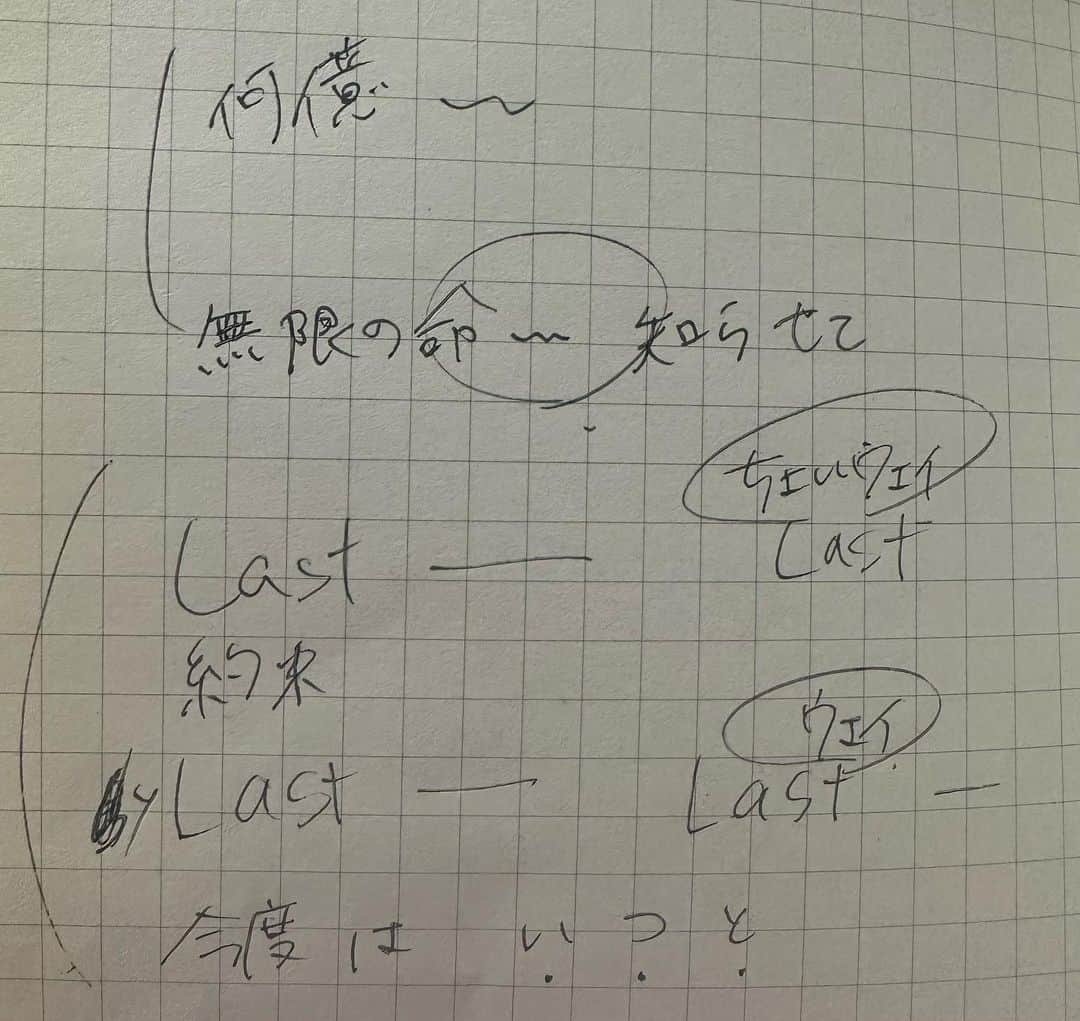 何億〜
無限の部〜知らせて
ちェいウェイ
Last — Last
約束
ウェイ
Last — Last —
今度は いつと